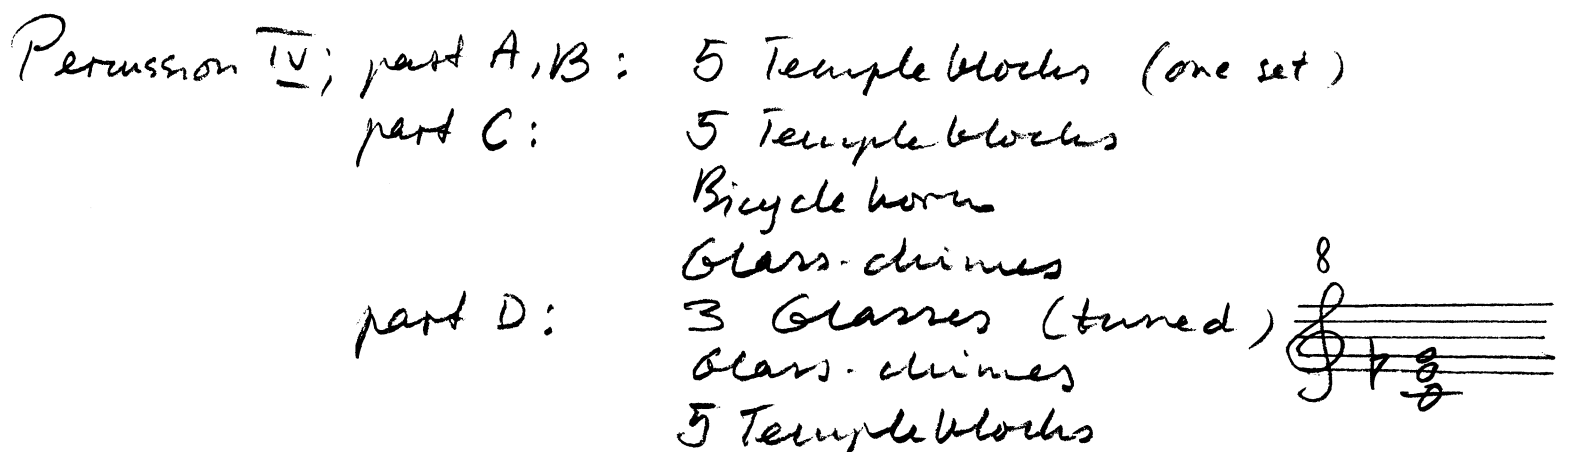 Percussion IV; part A, B: 5 Temple blocks (one set)
part C: 5 Temple blocks
Bicycle horn
Glass-chimes
8
part D: 3 Glasses (tuned)
Glass-chimes
5 Temple blocks